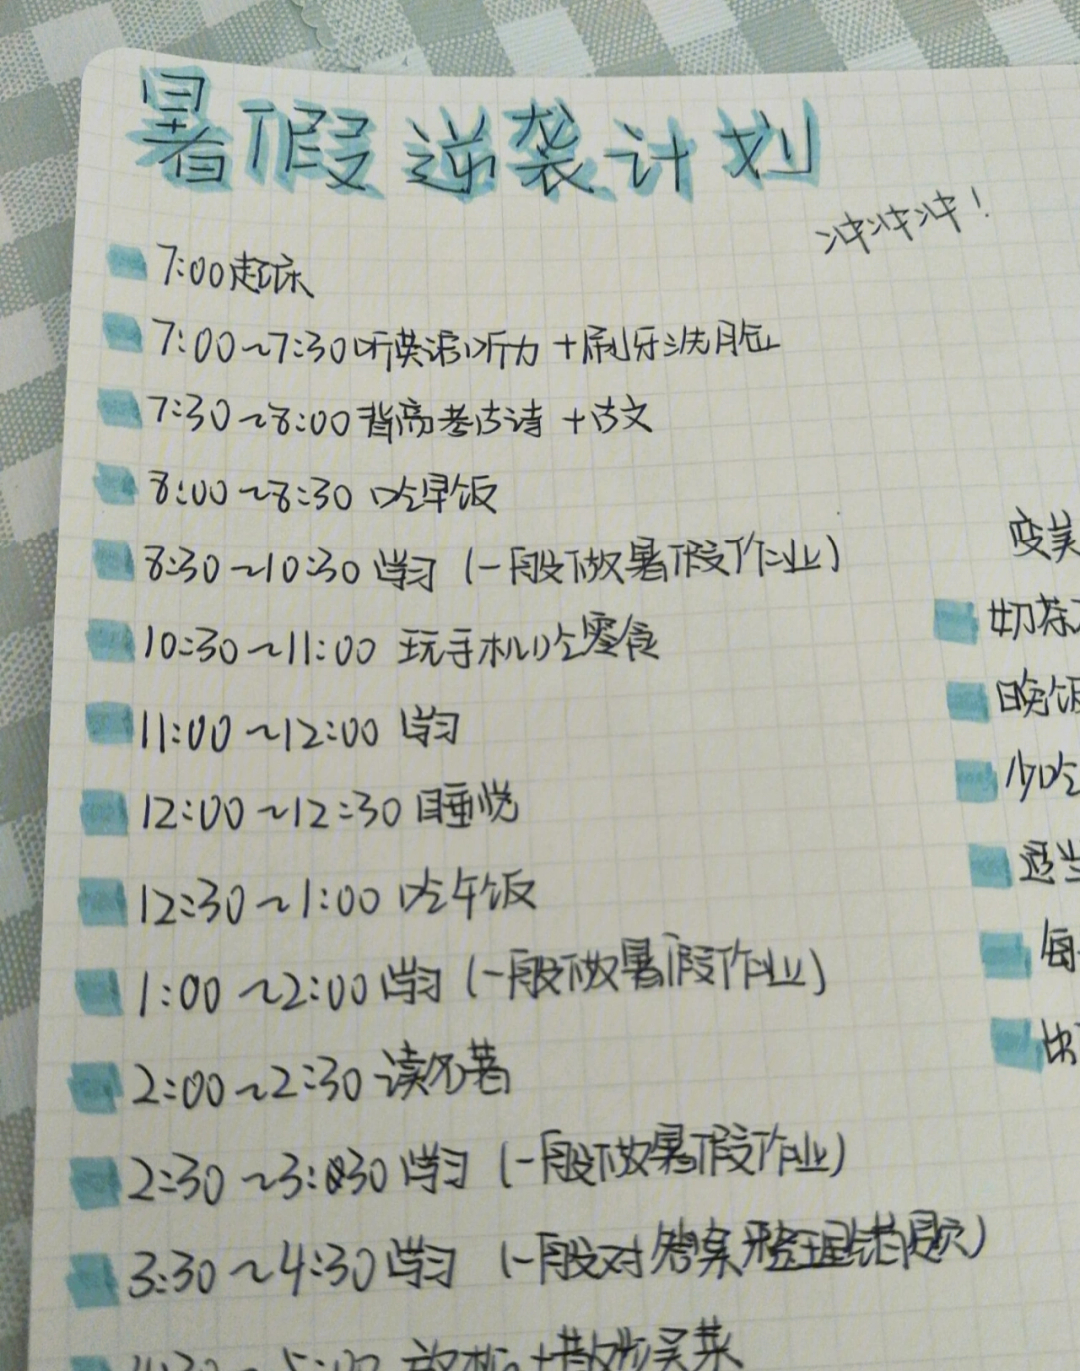 暑假逆袭计划
冲冲冲！
7:00起床
7:00~7:30听英语听力+刷牙洗脸
7:30~8:00背高考古诗+古文
8:00~8:30 吃早饭
8:30~10:30 学习（一般做暑假作业）
10:30~11:00 玩手机吃零食
11:00~12:00 学习
12:00~12:30 睡觉
12:30~1:00 吃午饭
1:00~2:00 学习（一般做暑假作业）
2:00~2:30 读名著
2:30~3:30 学习（一般做暑假作业）
3:30~4:30 学习（一般对答案整理错题）
4:30~5:00 放松+散步买菜
变美
奶茶
晚饭
少吃
适当
每